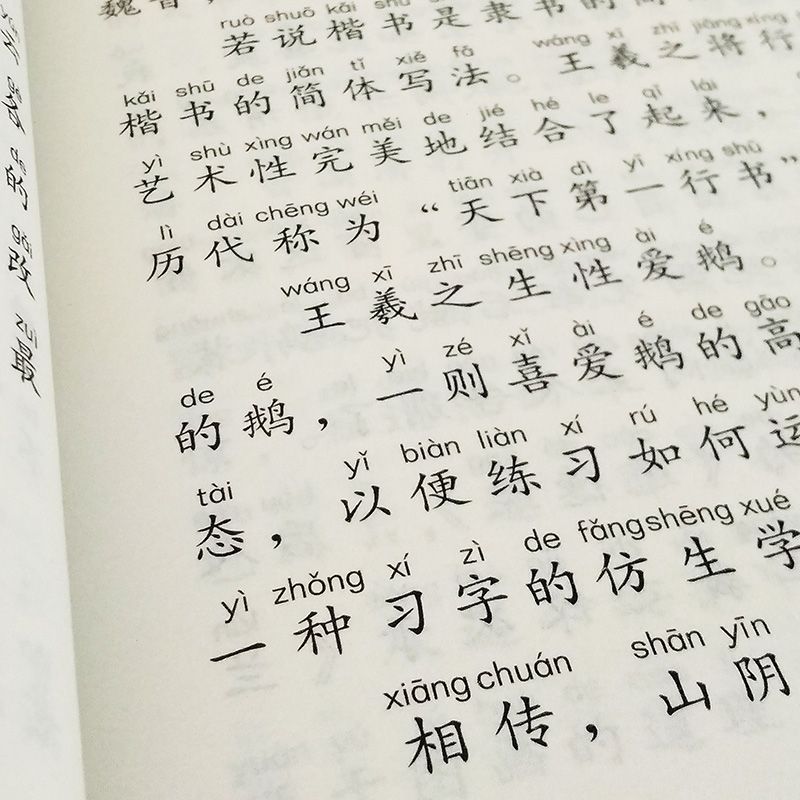 ruò shuō kǎi shū
若说楷书是隶书的简
kǎi shū de jiǎn tǐ xiě fǎ wáng xī zhī jiāng xíng
楷书的简体写法。王羲之将行
yì shù xìng wán měi de jié hé le qǐ lái
艺术性完美地结合了起来，
lì dài chēng wéi tiān xià dì yī xíng shū
历代称为“天下第一行书”
wáng xī zhī shēng xìng ài é
王羲之生性爱鹅。
de é yì zé xǐ ài é de gāo
的鹅，一则喜爱鹅的高
tài yǐ biàn liàn xí rú hé yùn
态，以便练习如何运
yì zhǒng xí zì de fǎng shēng xué
一种习字的仿生学
xiāng chuán shān yīn
相传，山阴
的改
最